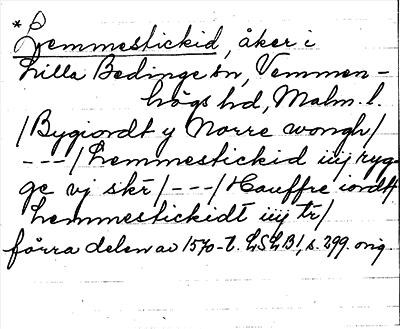 * Lemmestickid, åker i
Lilla Bedinge sn, Vemmen-
högs hd, Malm. l.
/Bygiordt y Norre wongh/
---/Lemmestickid iiij ryg-
ge vj skr/---/Hauffre iordt/
Lemmestickidt iiij tr/
förra delen av 1570-t. LSLB1, s. 299. orig.